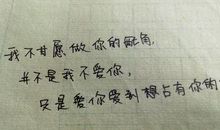 我不甘愿做你的配角,
并不是我不爱你,
只是爱你爱到想占有你的